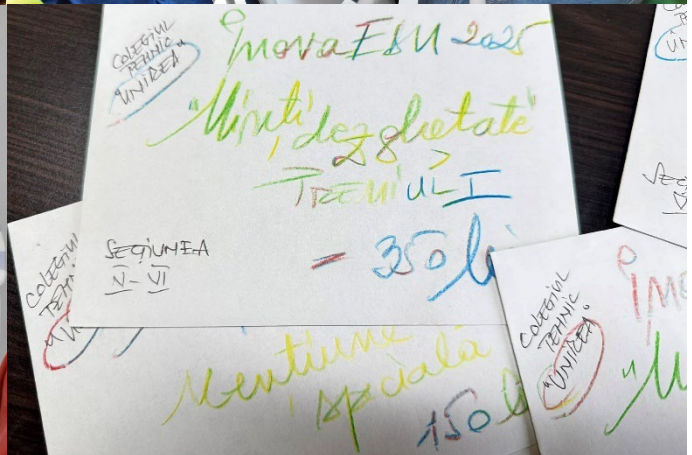 COLEGIUL
TEHNIC
"UNIREA"
InovaEDU 2025
"Minți dezghețate"
PREMIUL I
SECȚIUNEA
V-VI
- 350 lei
COLEGIUL
TEHNIC
Mențiune
specială
150
COLEGIUL
TEHNIC
"UNIREA"